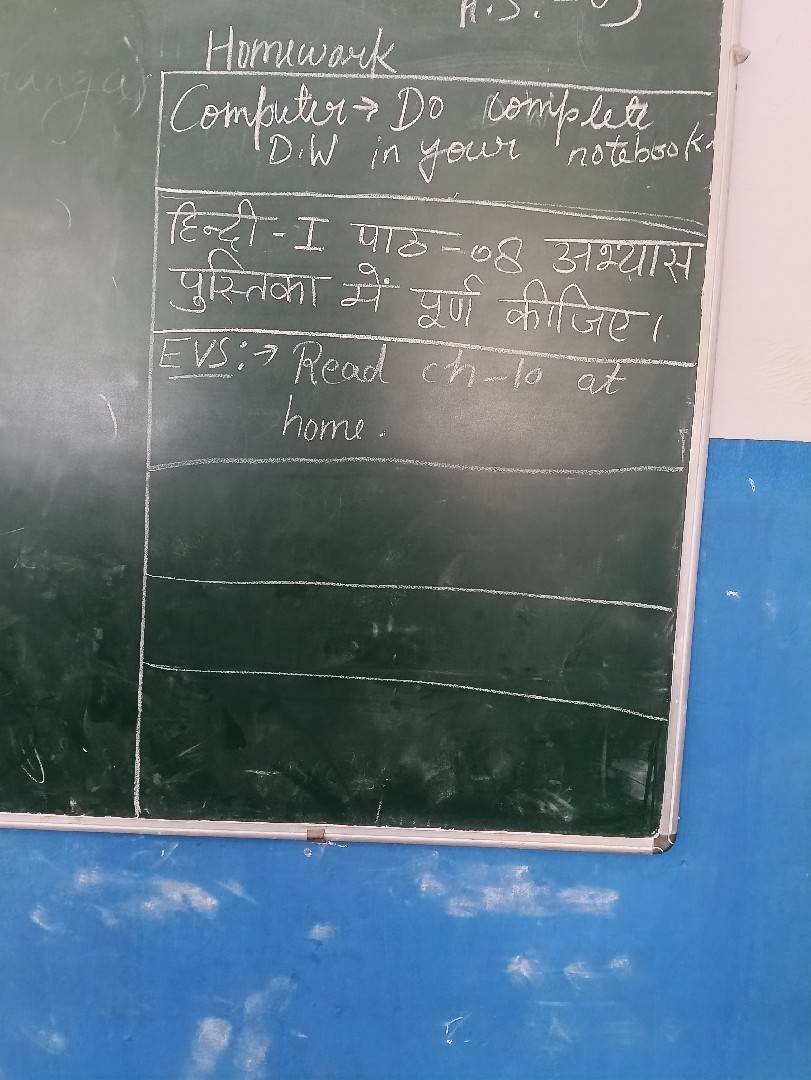 Homework
Computer → Do complete
D.W in your notebook.
हिन्दी - I पाठ - 08 अभ्यास
पुस्तिका में पूर्ण कीजिए।
EVS: → Read ch-10 at
home.